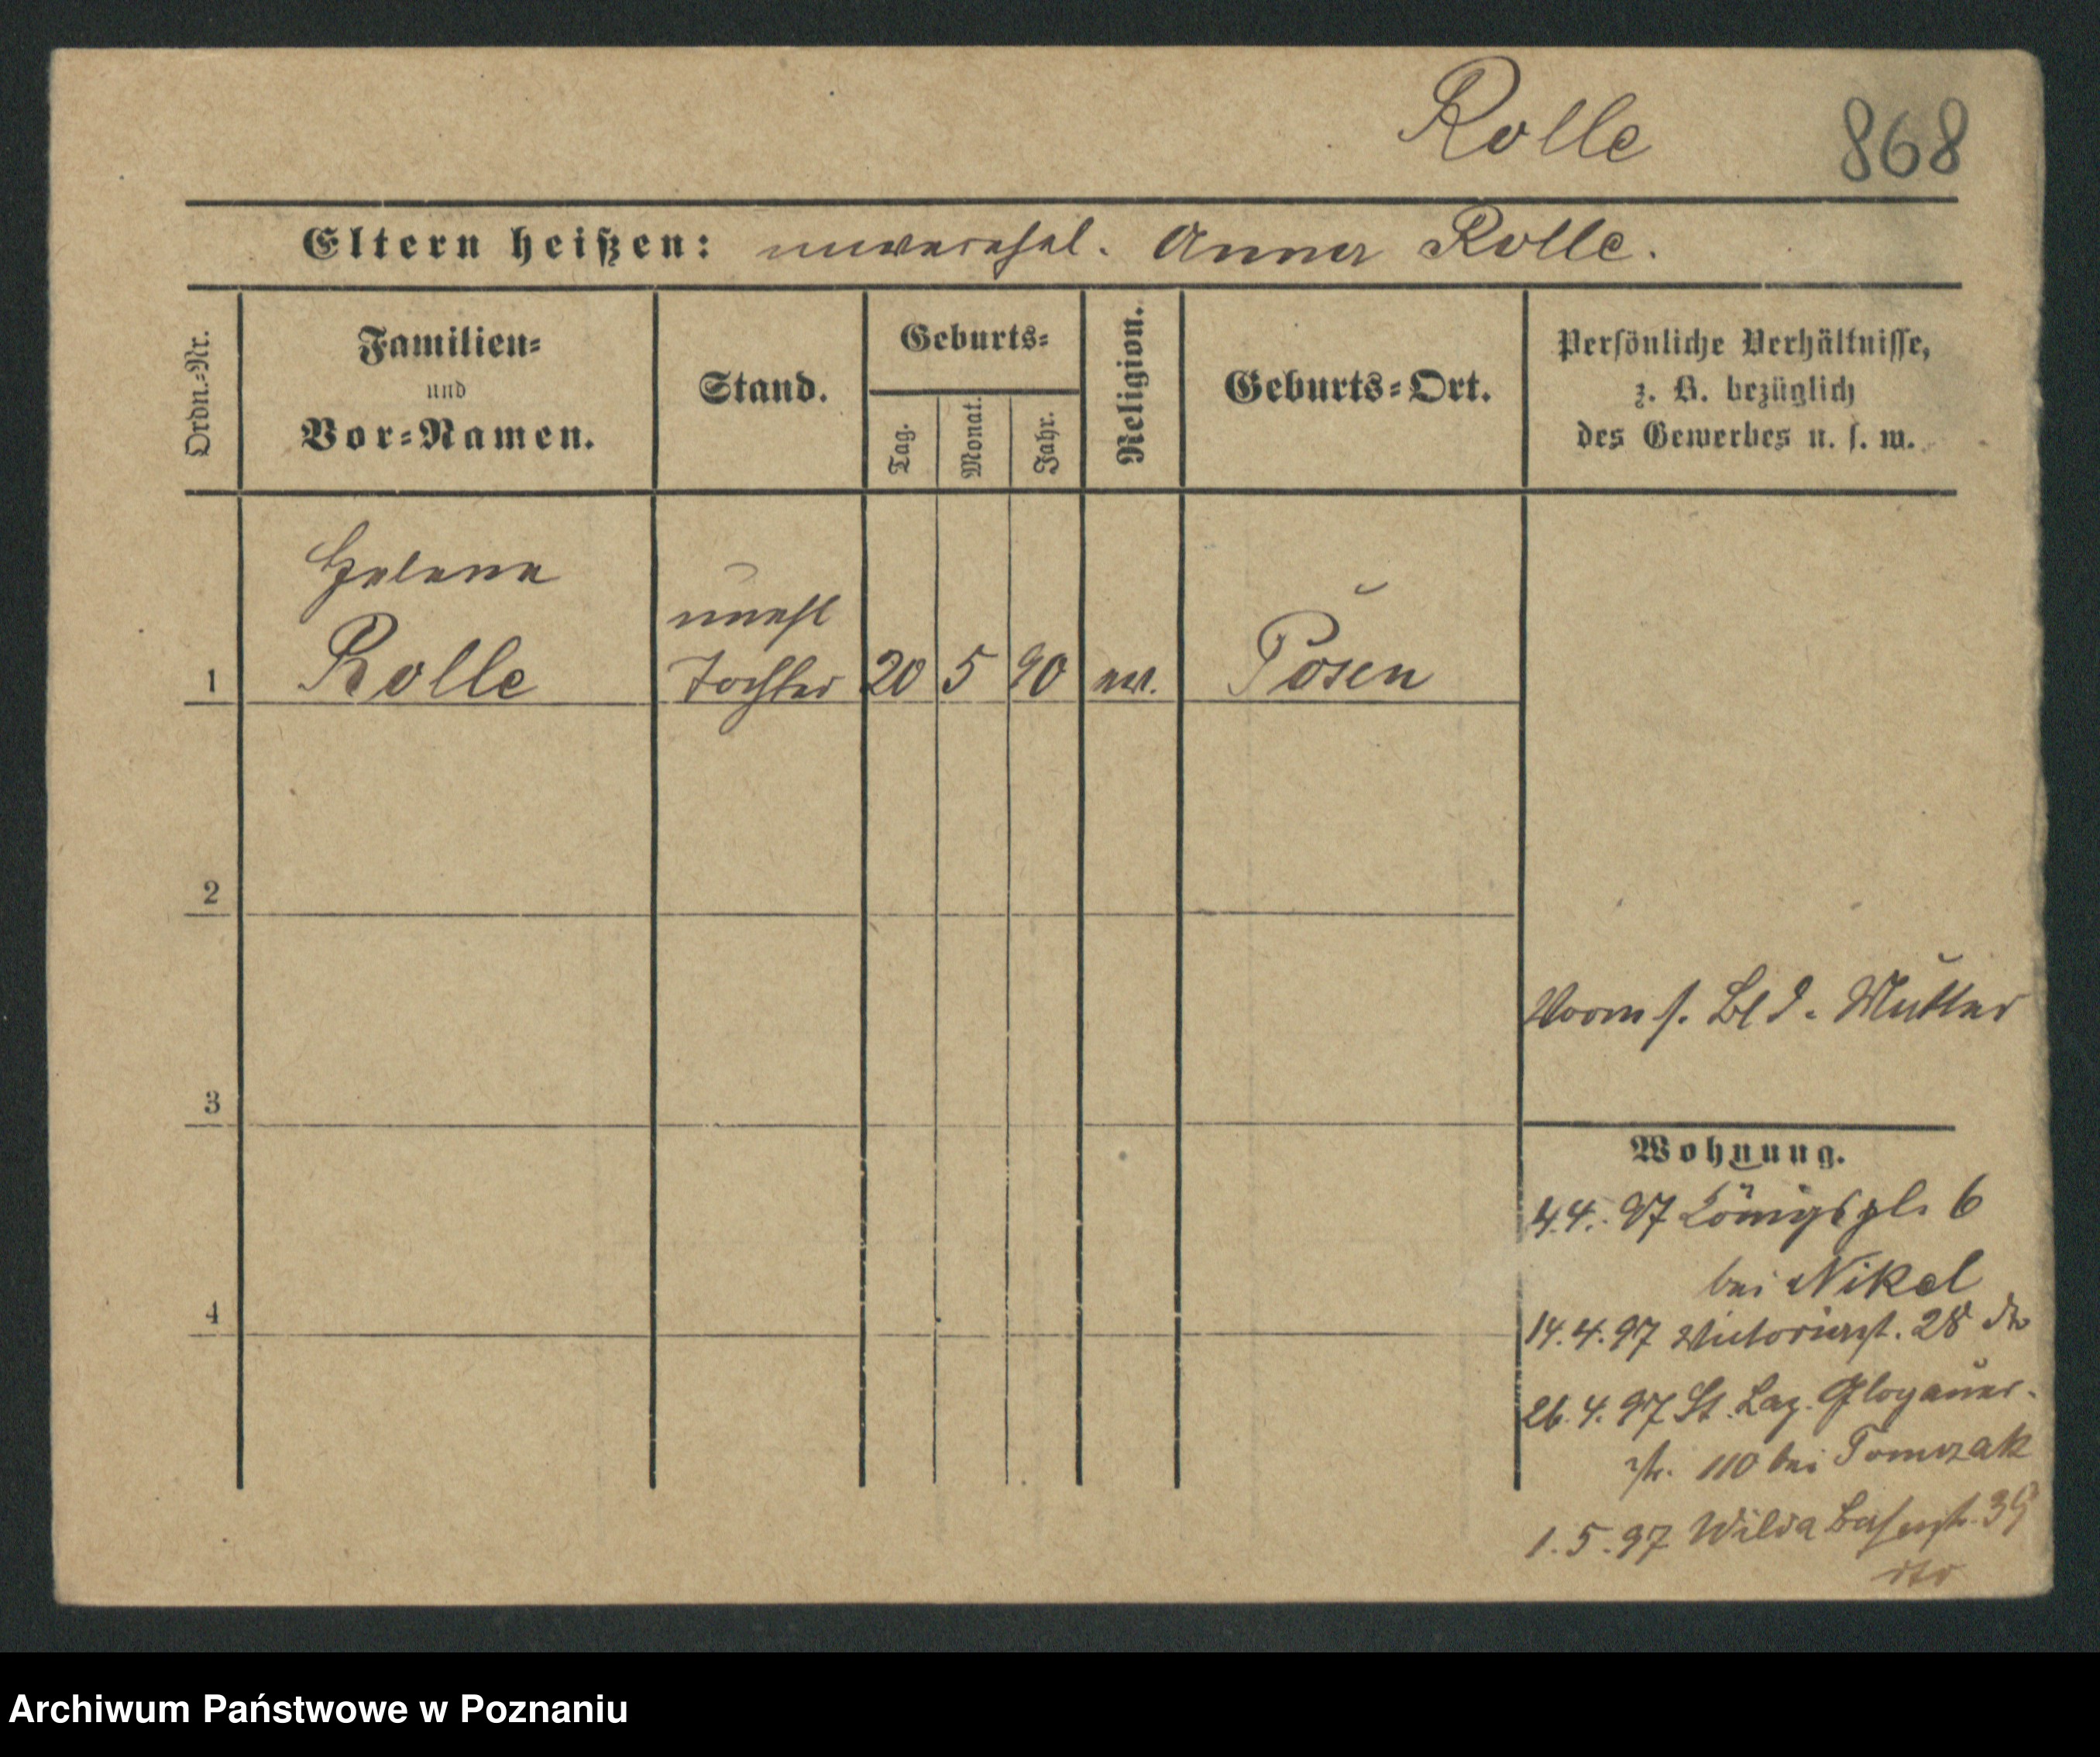 Rolle 868
Eltern heißen: unverehel. Anna Rolle.
Ordn.-Nr.
Familien-
und
Vor-Namen.
Stand.
Geburts-
Tag.
Monat.
Jahr.
Religion.
Geburts-Ort.
Persönliche Verhältnisse,
z. B. bezüglich
des Gewerbes u. s. w.
Helene
unehl
1 Rolle Tochter 20 5 90 ev. Posen
2
Vorm s. Bl d. Mutter
3
Wohnung.
4.4.97 Königspl. 6
bei Nikel
4
14.4.97 Victoriast. 28
26.4.97 St. Laz. Glogauer-
str. 110 bei Tomczak
1.5.97 Wilda
dto
Archiwum Państwowe w Poznaniu